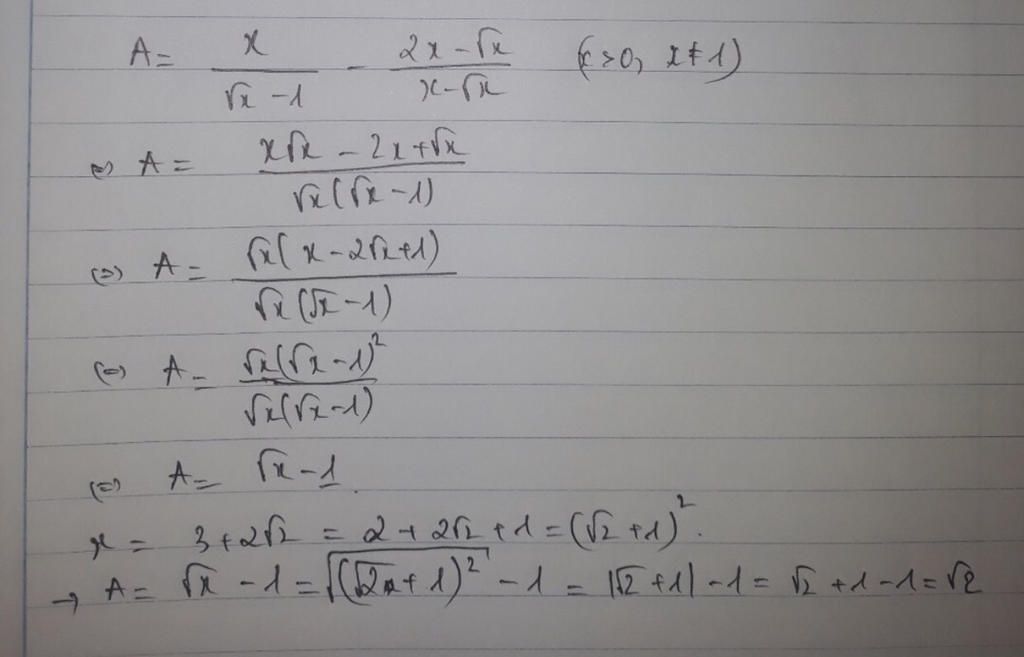 A = x/(√x - 1) - (2x - √x)/(x - √x) (x > 0, x ≠ 1)
(=) A = (x√x - 2x + √x)/(√x(√x - 1))
(=) A = √x(x - 2√x + 1)/(√x(√x - 1))
(=) A = √x(√x - 1)²/(√x(√x - 1))
(=) A = √x - 1.
x = 3 + 2√2 = 2 + 2√2 + 1 = (√2 + 1)².
→ A = √x - 1 = √((√2 + 1)²) - 1 = |√2 + 1| - 1 = √2 + 1 - 1 = √2